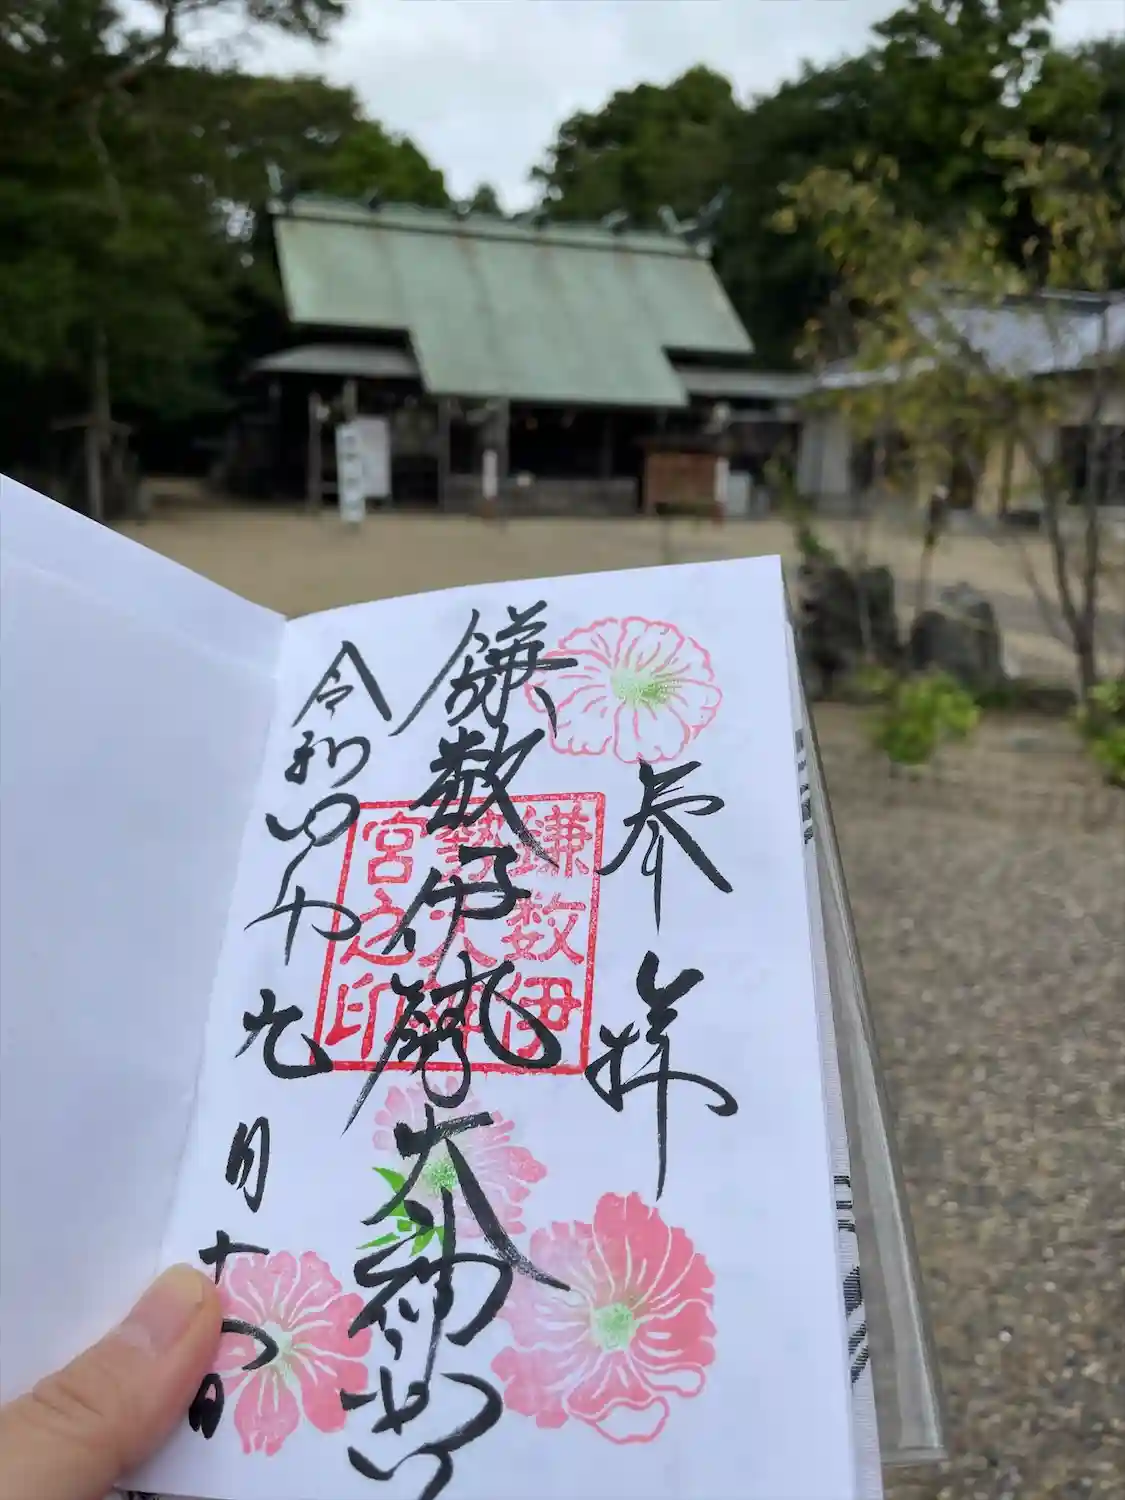 奉拝
鎌数伊勢大神宮
鎌数伊
勢大神
宮之印
令和四年九月十 日